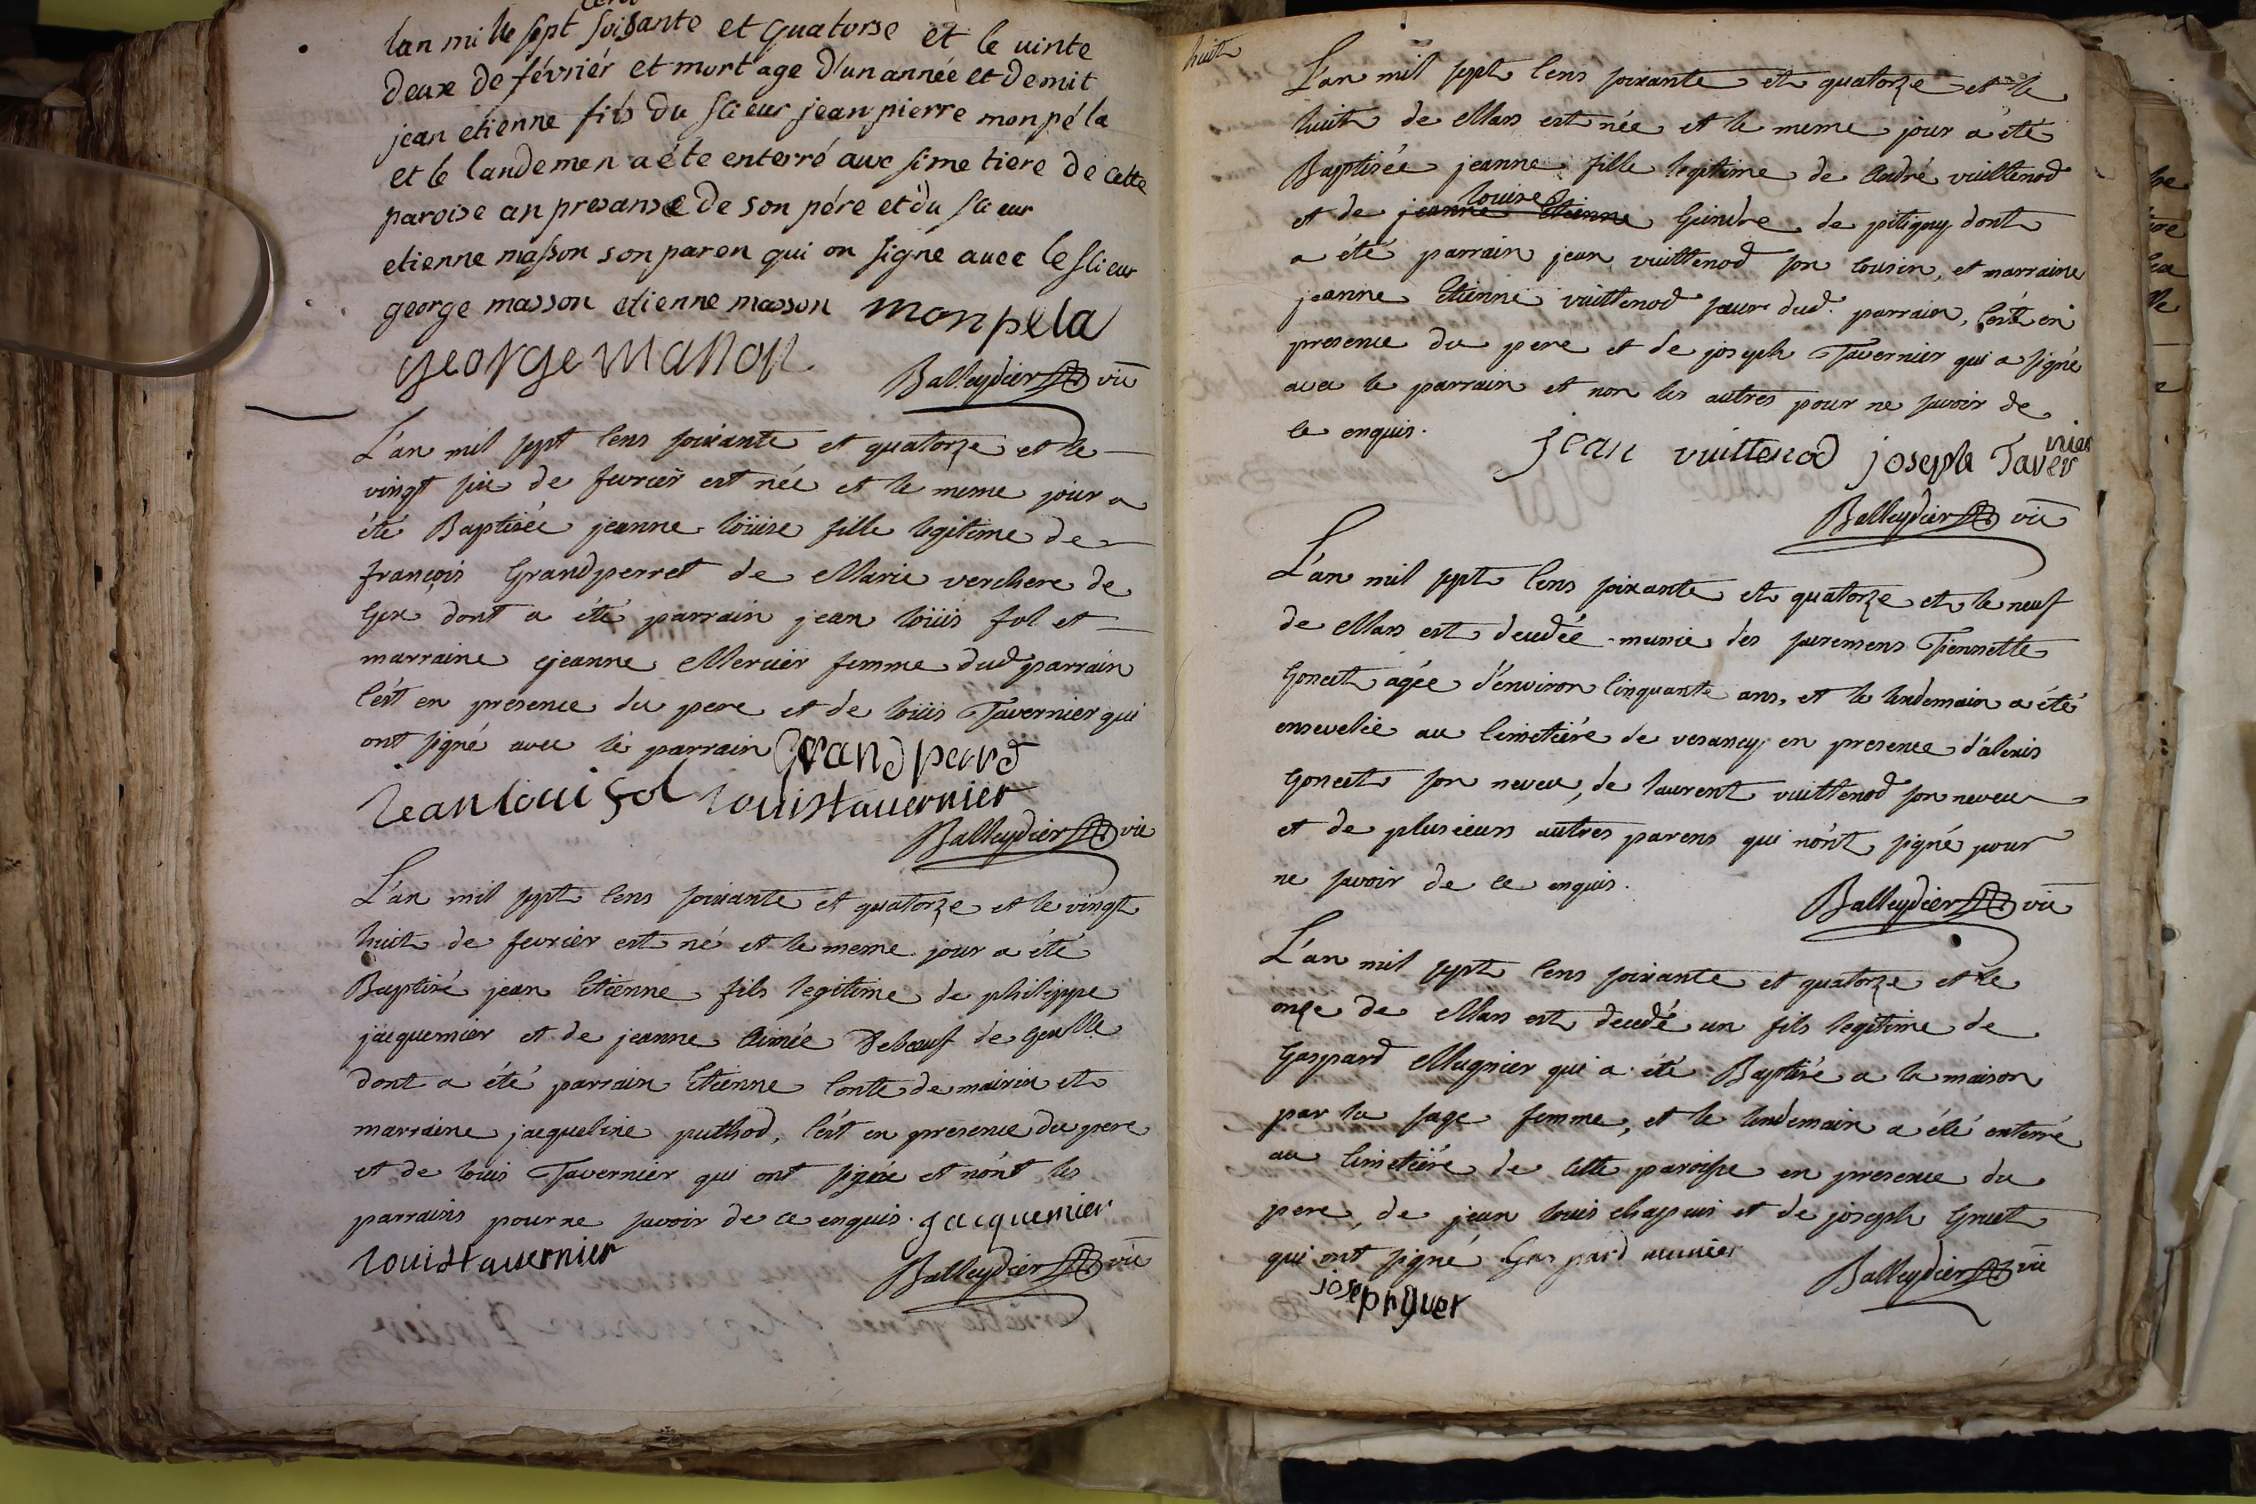 cens
lan mille sept soisante et quatorse et le vinte
deux de févriér et mort age d'un année et demit
jean etienne fils du slieur jean pierre monpéla
et le landemen a éte enterré aux simetiere de cette
paroise an presanse de son pére et du slieur
etienne masson son paren qui on signé avec le slieur
george masson etienne masson monpela
george masson
Balleydier vic
L'an mil sept cens soixante et quatorze et le
vingt six de fevrier est née et le meme jour a
été Baptisée jeanne loüise fille legitime de
françois Grandperret de Marie verchere de
Gex dont a été parrain jean loüis fol et
marraine jeanne Mercier femme dud parrain
c'est en presence du pere et de loüis Tavernier qui
ont signé avec le parrain Grandpard
Jean loui fol louistavernier
Balleydier vic
L'an mil sept cens soixante et quatorze et le vingt
huit de fevrier est né et le meme jour a été
Baptisé jean Etienne fils legitime de philippe
jacquemier et de jeanne Aimée Debeauf de
dont a été parrain Etienne Conte de mairin et
marraine jacqueline puthod, c'est en presence du pere
et de louis Tavernier qui ont signé et nont les
parrains pour ne savoir de ce enquis. jacquemier
louistavernier
Balleydier vic
huit
L'an mil sept cens soixante et quatorze et le
huit de Mars est née et le meme jour a été
Baptisée jeanne fille legitime de André vuittenod
louise
et de jeanne Etienne Geindre de pitigny dont
a été parrain jean vuittenod son cousin, et marraine
jeanne Etienne vuittenod sœur dud. parrain, c'est en
presence du pere et de joseph Tavernier qui a signé
avec le parrain et non les autres pour ne savoir de
ce enquis.
jean vuittenod joseph Tavernier
Balleydier vic
L'an mil sept cens soixante et quatorze et le neuf
de Mars est decedée munie des sacremens Pernette
Gonet agée d'environ cinquante ans, et le lendemain a été
ensevelie au cimetière de vesancy en presence d'alexis
Gonet son neveu, de laurent vuittenod son neveu
et de plusieurs autres parens qui n'ont signé pour
ne savoir de ce enquis.
Balleydier vic
L'an mil sept cens soixante et quatorze et le
onze de Mars est decedé un fils legitime de
Gaspard Mugnier qui a été Baptisé a la maison
par la sage femme, et le lendemain a été enterré
au cimetière de cette paroisse en presence du
pere, de jean louis chapuis et de joseph Gruet
qui ont signé Gaspard munier
joseph gruer
Balleydier vic